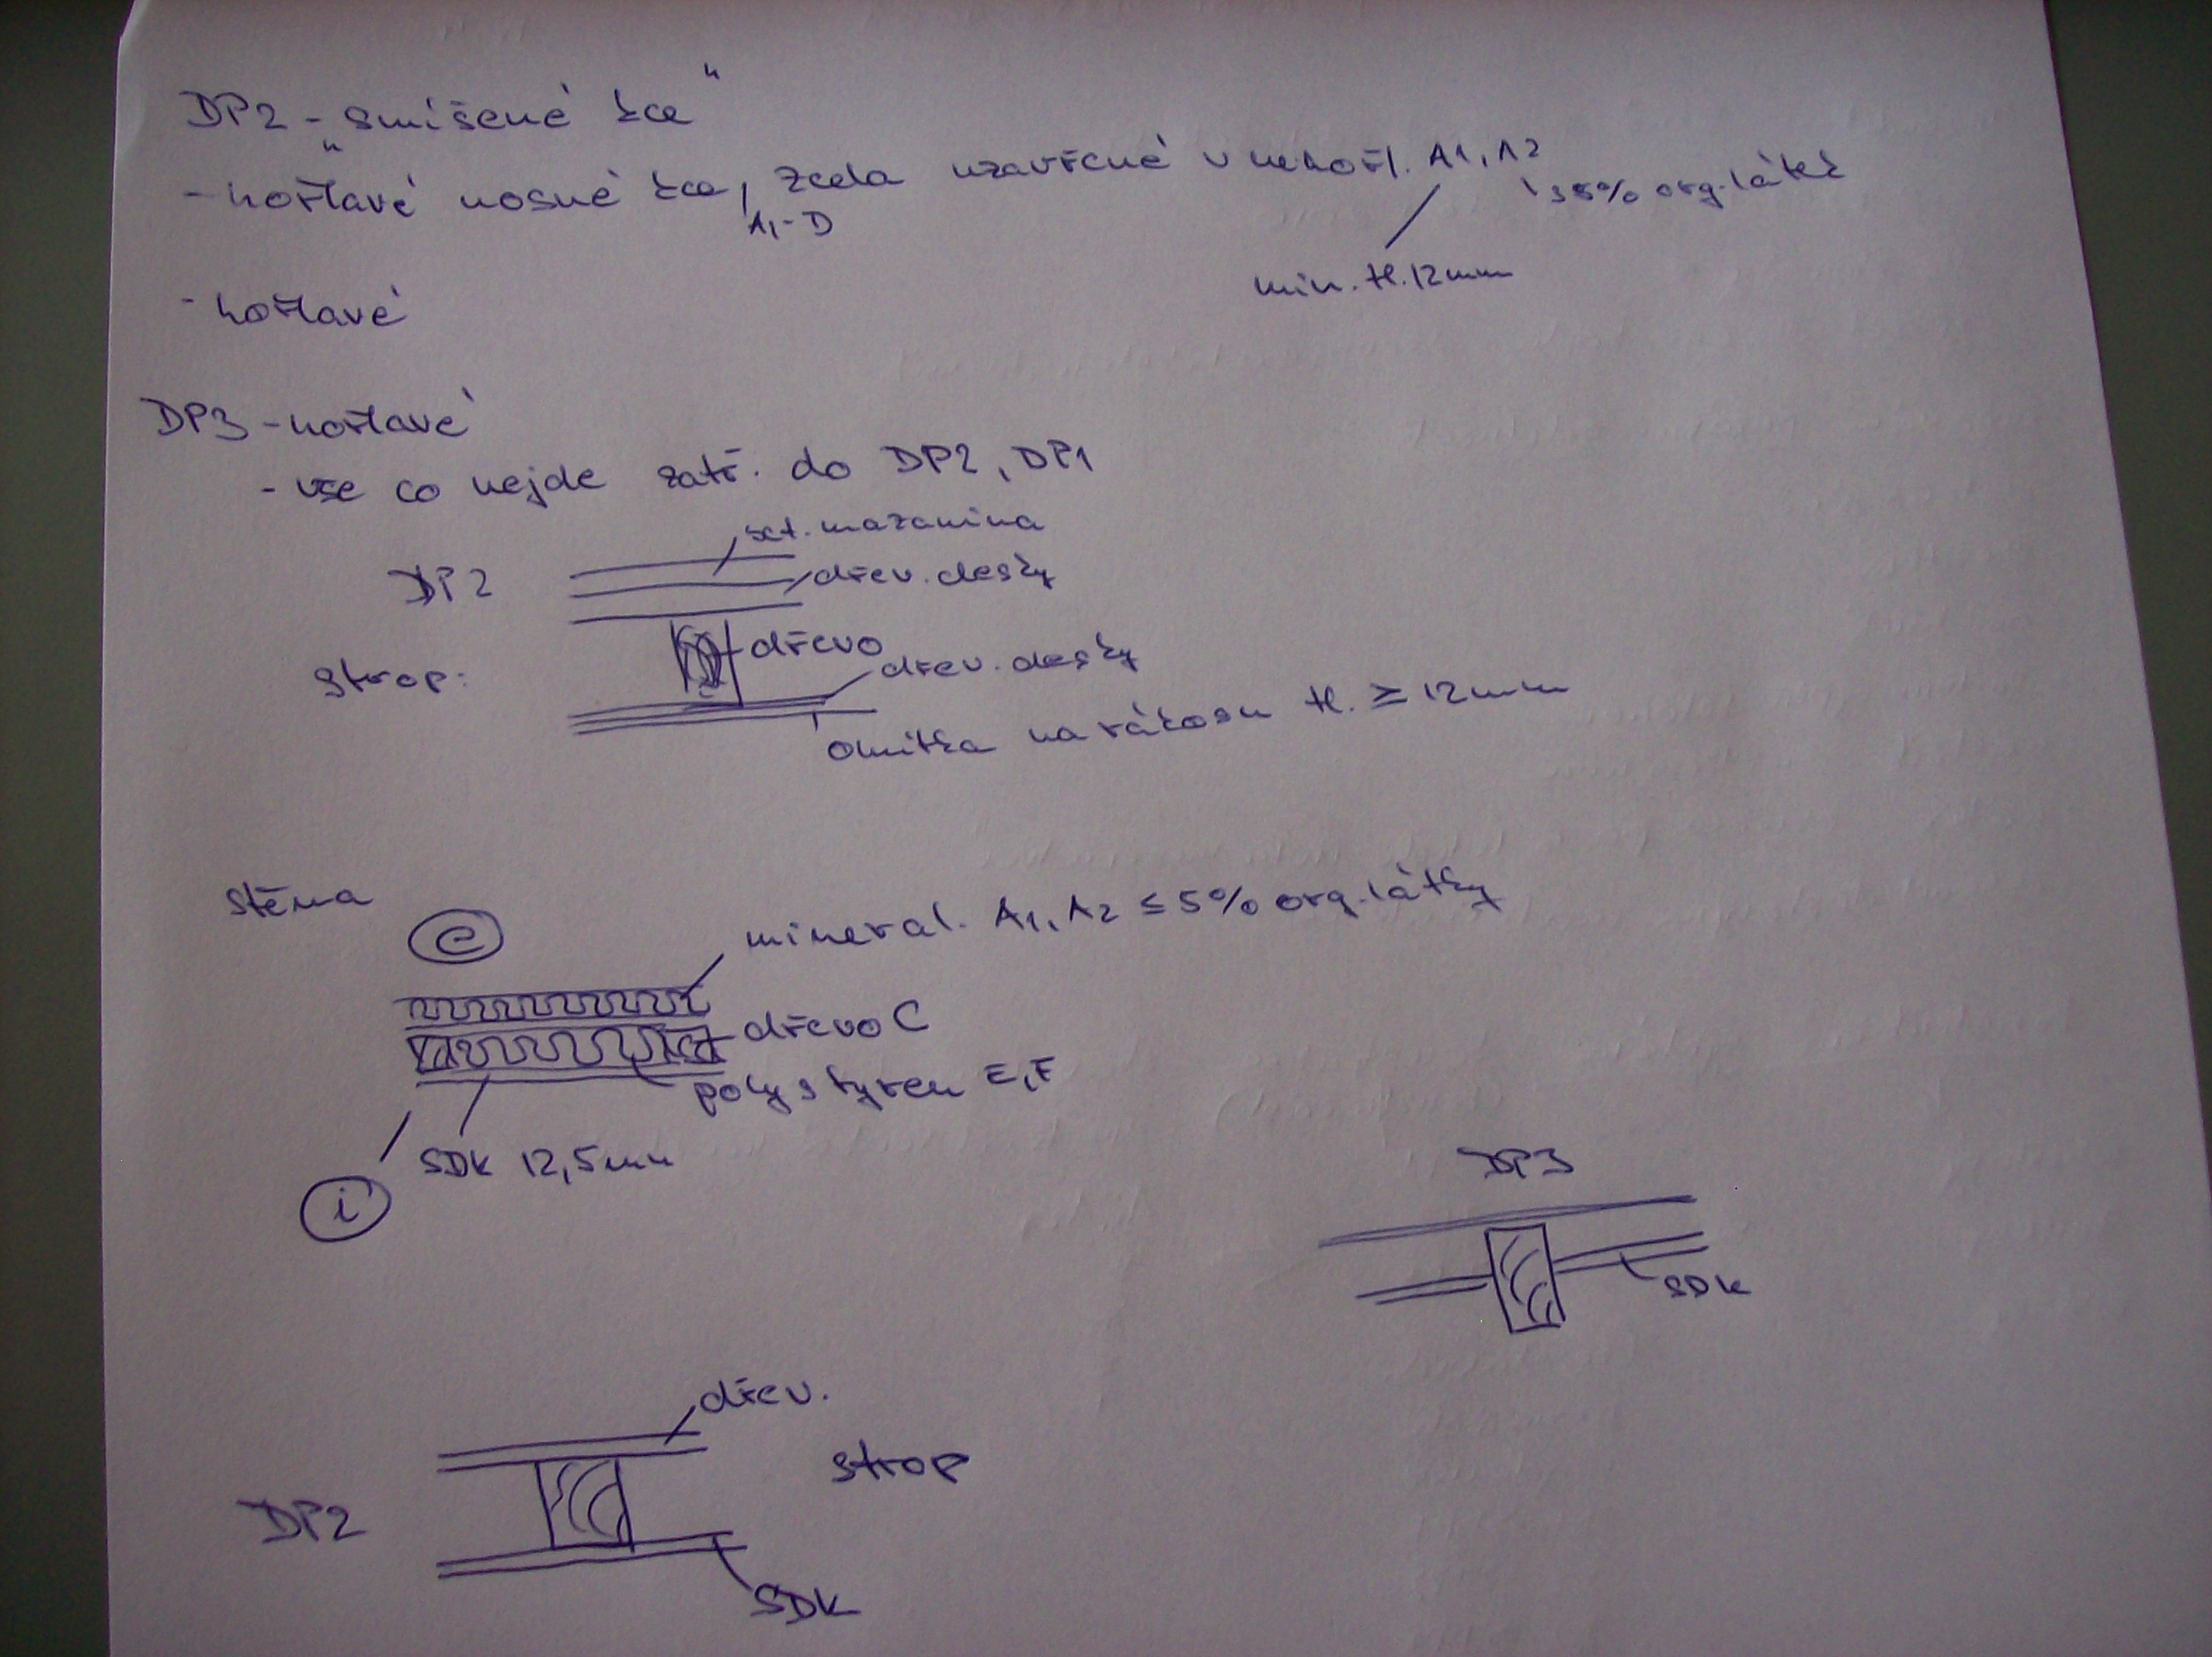 DP2 - „smíšené kce"
- hořlavé nosné kce, zcela uzavřené v nehořl. A1, A2
A1-D
5% org. látek
min. tl. 12mm
- hořlavé
DP3 - hořlavé
- vše co nejde zatř. do DP2, DP1
DP2
bet. mazanina
dřev. desky
strop:
dřevo
dřev. desky
omítka na rákosu tl. ≥ 12mm
stěna
e
mineral. A1, A2 ≤ 5% org. látky
dřevo C
polystyren E, F
SDK 12,5mm
i
DP3
SDK
dřev.
strop
DP2
SDK